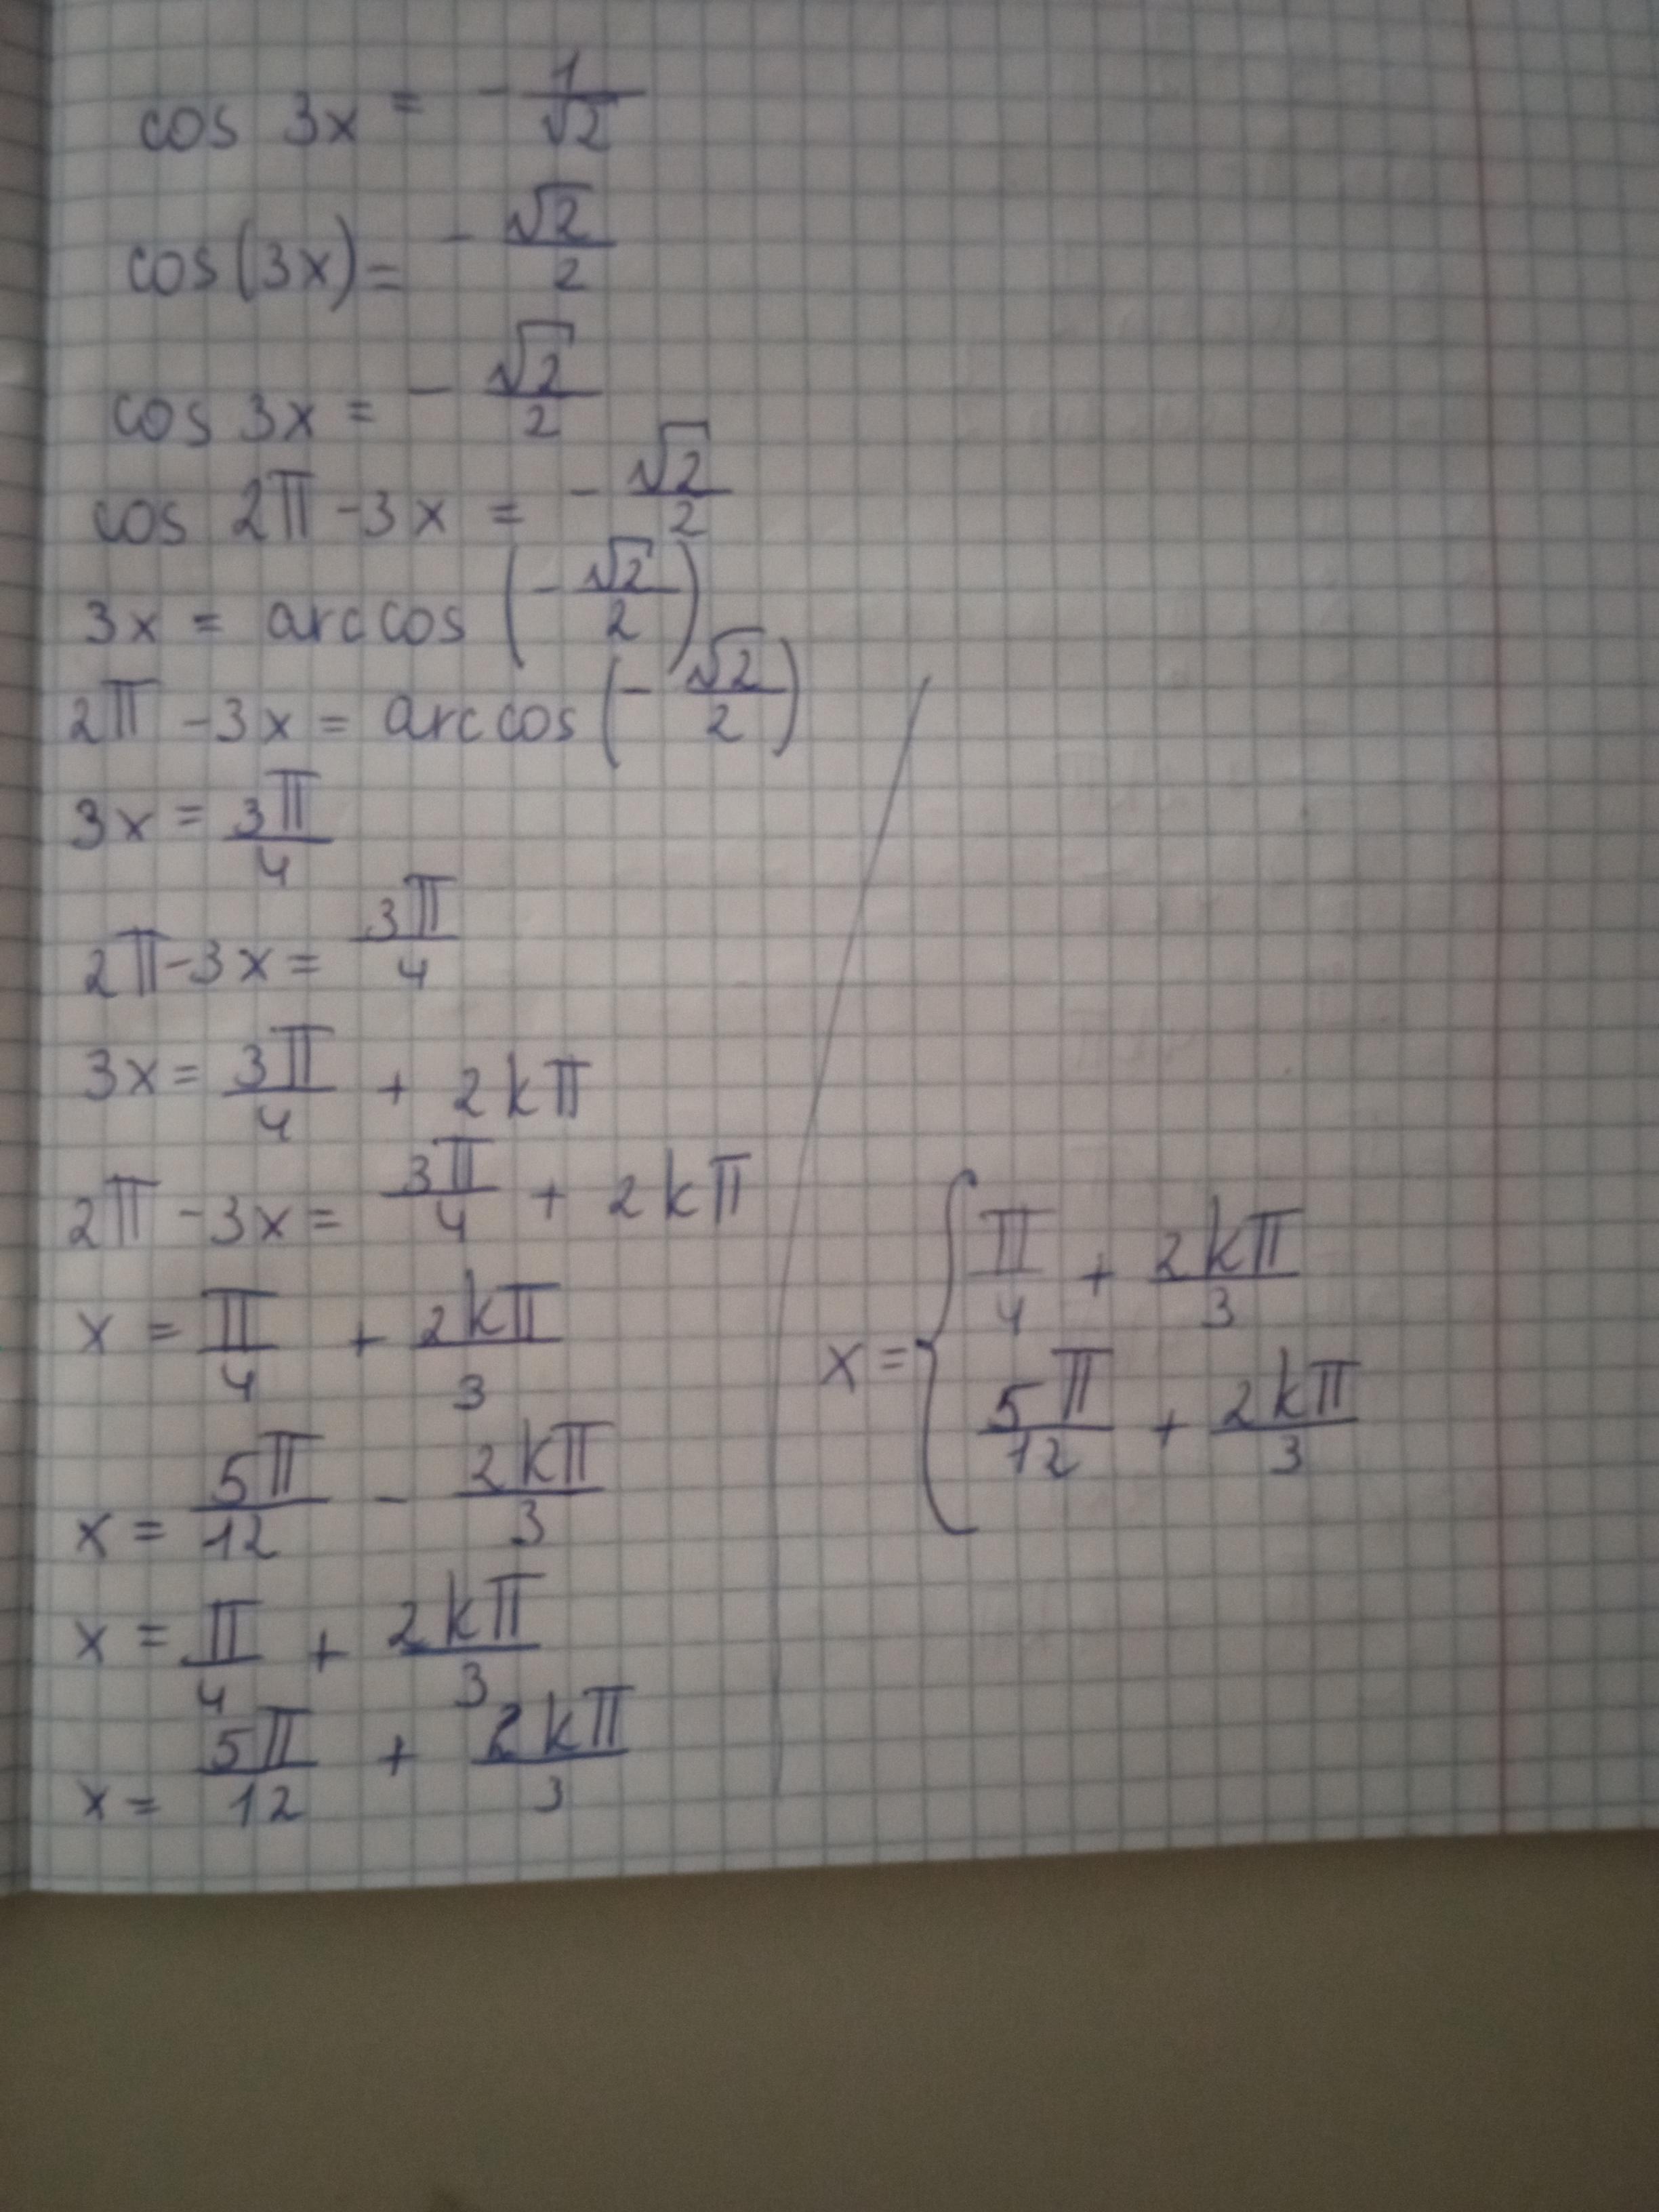 cos 3x = - 1/√2
cos(3x) = - √2/2
cos 3x = - √2/2
cos 2π - 3x = - √2/2
3x = arccos (- √2/2)
2π - 3x = arccos (- √2/2)
3x = 3π/4
2π - 3x = 3π/4
3x = 3π/4 + 2kπ
2π - 3x = 3π/4 + 2kπ
x = π/4 + 2kπ/3
x = 5π/12 - 2kπ/3
x = π/4 + 2kπ/3
x = 5π/12 + 2kπ/3
x = { π/4 + 2kπ/3
5π/12 + 2kπ/3